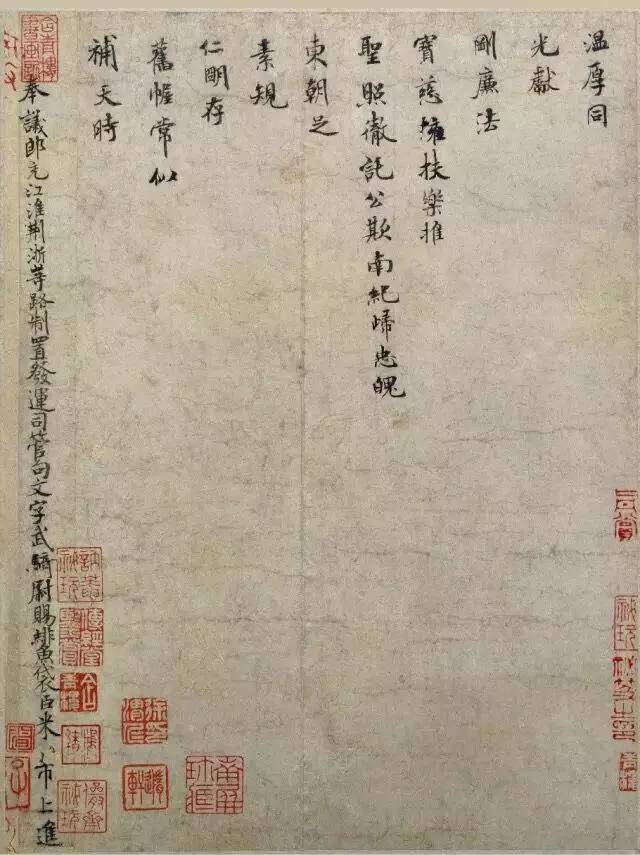 温厚同
光獻
剛廉法
寶慈擁扶樂推
聖照徹託公欺南紀歸忠魄
東朝足
素規
仁明存
舊幄常似
補天時
奉議郎充江淮荊浙等路制置發運司管勾文字武騎尉賜緋魚袋臣米芾上進